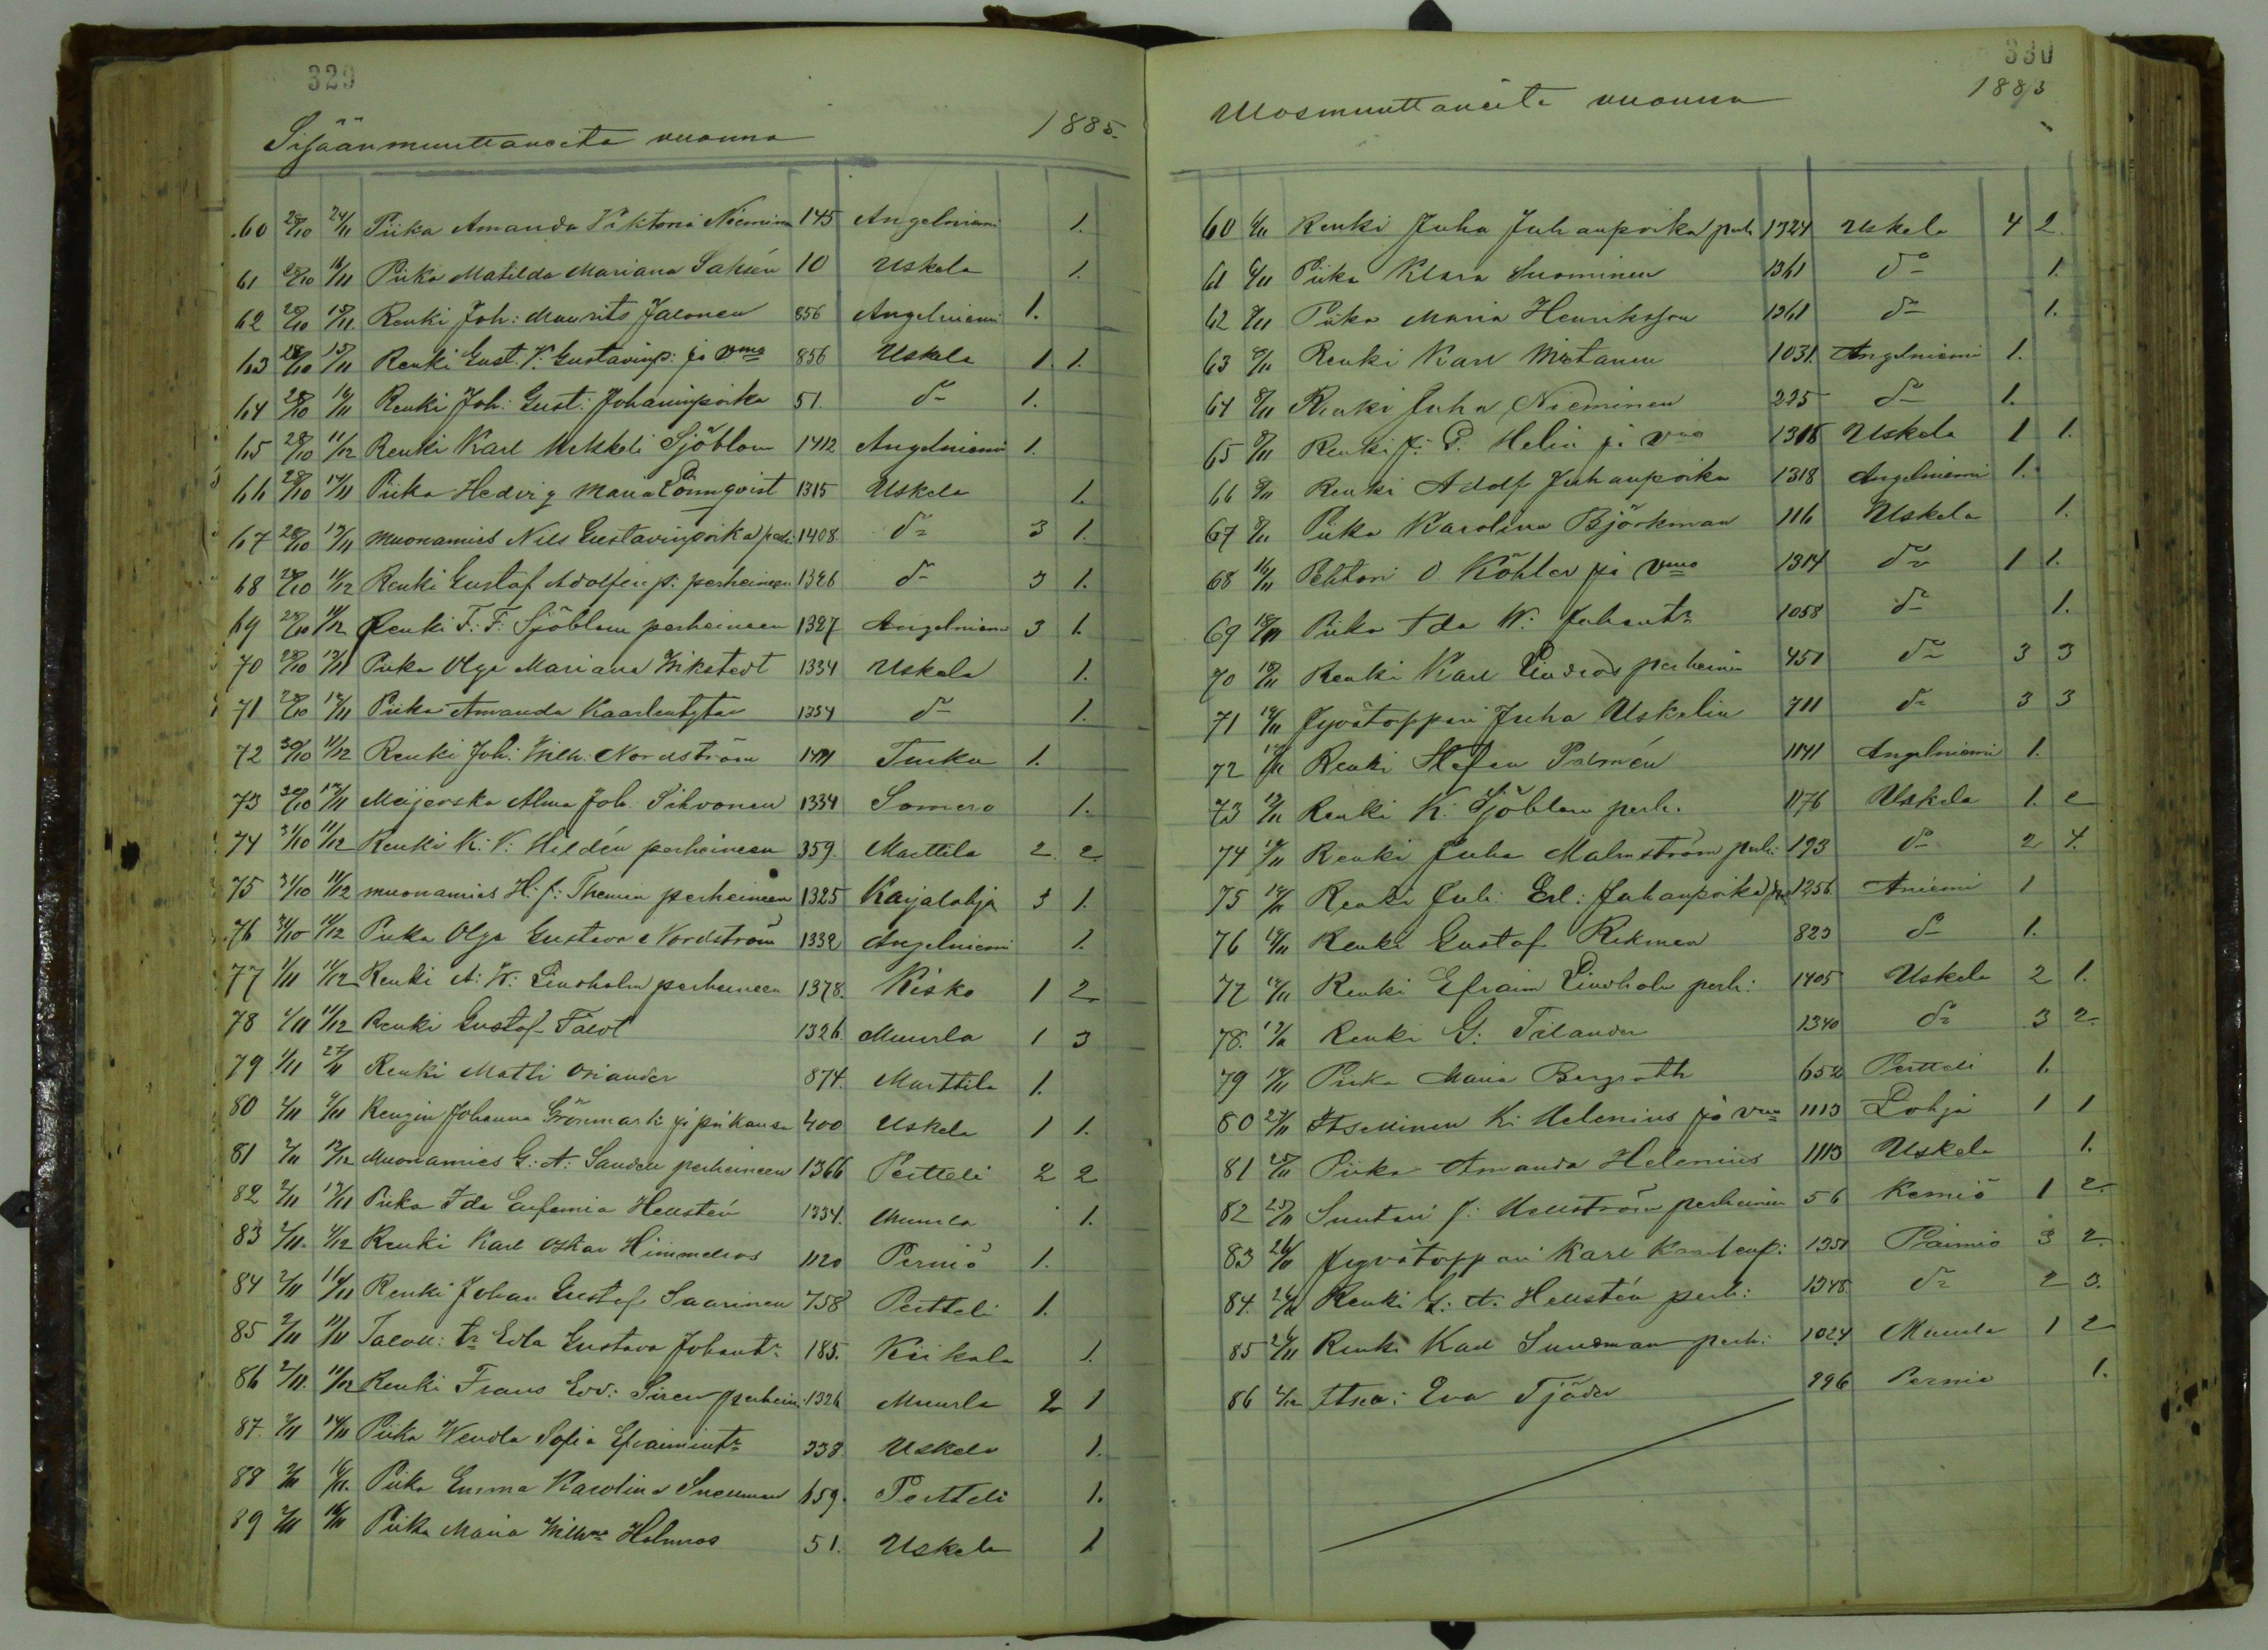 329
Sisäänmuuttaneita vuonna 1885.
60 28/10 24/11 Piika Amanda Viktoria Niemine 145 Angelniemi 1.
61 28/10 16/11 Piika Matilda Mariana Salsén 10 Uskela 1.
62 28/10 15/11 Renki Joh: Maurits Jalonen 856 Angelniemi 1.
63 28/10 15/11 Renki Gust. V. Gustavinp: ja Vmo 856 Uskela 1. 1.
64 28/10 16/11 Renki Joh: Gust: Johaninpoika 51. do 1.
65 28/10 11/12 Renki Karl Mikkeli Sjöblom 1412 Angelniemi 1.
66 28/10 14/11 Piika Hedvig Maria Lönnqvist 1315 Uskela 1.
67 28/10 19/11 Muonamies Nils Gustavinpoika perh: 1408 do 3 1.
68 28/10 11/12 Renki Gustaf Adolfin p: perheineen 1326 do 3 1.
69 28/10 11/12 Renki F: F: Sjöblom perheineen 1327 Angelniemi 3 1.
70 28/10 19/11 Piika Olga Mariana Wikstedt 1334 Uskela 1.
71 28/10 12/11 Piika Amanda Kaarlentytär 1334 do 1.
72 30/10 11/12 Renki Joh: Wilh. Nordström 1411 Turku 1.
73 30/10 19/11 Meijerska Alma Joh. Sihvonen 1334 Somero 1.
74 31/10 11/12 Renki K: V: Hildén perheineen 359. Marttila 2 2.
75 31/10 11/12 Muonamies H: J: Themen perheineen 1325 Karjalohja 3 1.
76 31/10 11/12 Piika Olga Gustava Nordström 1332 Angelniemi 1.
77 1/11 11/12 Renki A: W: Lindholm perheineen 1378. Kisko 1 2
78 1/11 11/12 Renki Gustaf Falot 1326 Muurla 1 3
79 1/11 27/11 Renki Matti Osiander 874. Marttila 1.
80 2/11 2/11 Rengin Johanna Grönmark ja pn kanssa 400 Uskela 1 1.
81 2/11 12/12 Muonamies G: A: Sandell perheineen 1366 Pertteli 2 2
82 2/11 19/11 Piika Ida Eufemia Hellstén 1334. Muurla 1.
83 2/11. 11/12 Renki Karl Oskar Himmelros 1120 Perniö 1.
84 2/11 11/11 Renki Johan Gustaf Saarinen 758 Pertteli 1.
85 2/11 11/11 Taloll: tr Edla Gustava Johantr 185. Kiikala 1.
86 2/11. 11/12 Renki Frans Edv: Siren perhein 1326 Muurla 2 1
87. 2/11 14/11 Piika Wendla Sofia Efraimintr 338 Uskela 1.
88 2/11 16/11. Piika Emma Karolina Snellman 659. Pertteli 1.
89 2/11 16/11 Piika Maria Wilhna Holmros 51. Uskela 1
330
Ulosmuuttaneita vuonna 1885
60 6/11 Renki Juha Juhanpoika perh 1324 Uskela 4 2.
61 6/11 Piika Klara Suominen 1361 do 1.
62 9/11 Piika Maria Henriksson 1361 do 1.
63 9/11 Renki Karl Mutanen 1031. Angelniemi 1.
64 9/11 Renki Juha Nieminen 225 do 1.
65 9/11 Renki J: G: Helin ja Vmo 1318 Uskela 1 1.
66 9/11 Renki Adolf Juhanpoika 1318 Angelniemi 1.
67 9/11 Piika Karolina Björkman 116 Uskela 1.
68 16/11 Pehtori O Köhler ja Vmo 1314 do 1 1.
69 18/11 Piika Ida W: Juhantr 1058 do 1.
70 18/11 Renki Karl Lindros perheinen 451 do 3 3
71 19/11 Jyvätorppari Juha Uskelin 711 do 3 3
72 19/11 Renki Stefan Palmén 1141 Angelniemi 1.
73 19/11 Renki K: Sjöblom perh. 1176 Uskela 1. 2
74 19/11 Renki Juha Malmström perh: 193 do 2 4.
75 19/11 Renki Juh: Erl: Juhanpoika 1256 Aniemi 1
76 19/11 Renki Gustaf Rikman 823 do 1.
77 19/11 Renki Efraim Lindholm perh: 1405 Uskela 2 1.
78. 19/11 Renki G: Tilander 1340 do 3 2.
79 19/11 Piika Maria Bergroth 652 Pertteli 1.
80 24/11 Itsellinen K: Helenius ja Vmo 1113 Lohja 1 1
81 25/11 Piika Amanda Helenius 1113 Uskela 1.
82 25/11 Suutari J: Hellström perheinen 56 Kemiö 1 2.
83 26/11 Jyvätorppari Karl Kaarlenp: 1351 Paimio 3 2.
84. 26/11 Renki G: A: Hellstén perh: 1348. do 2 3.
85 26/11 Renki Karl Sundman perh: 1024 Muurla 1 2
86 2/12 Itsel: Eva Tjäder 296 Perniö 1.